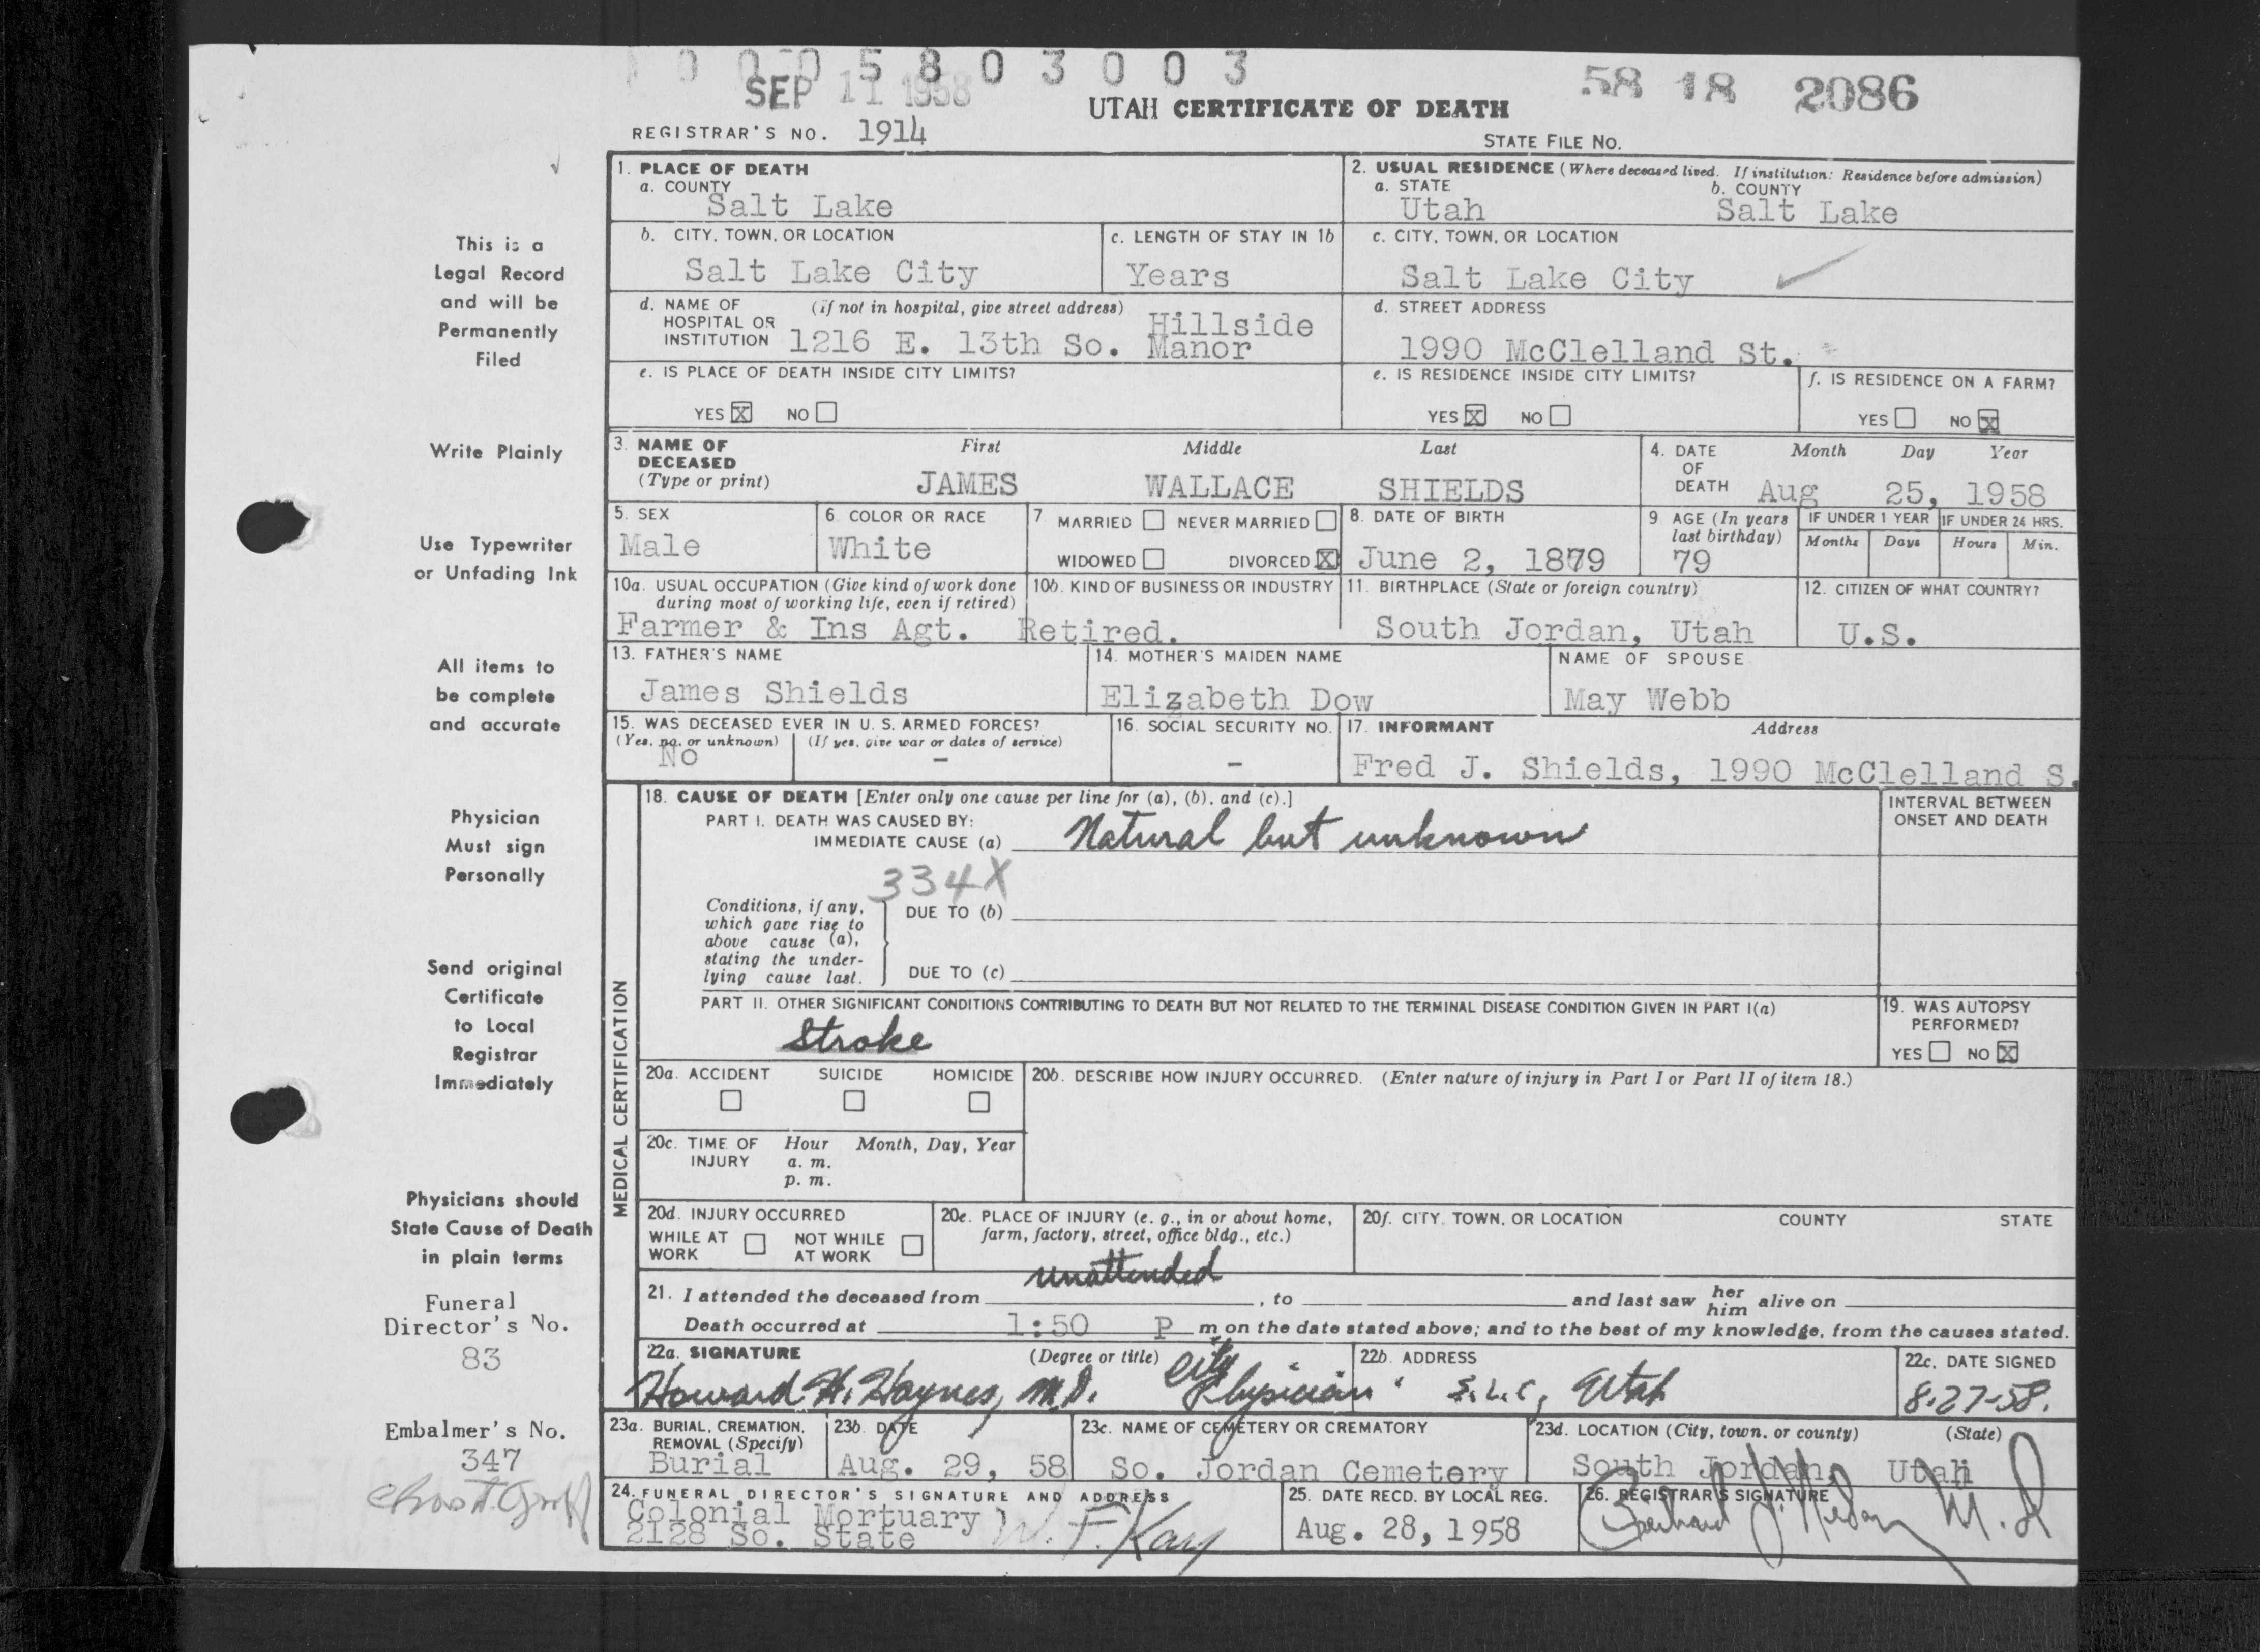 0 0 0 0 5 8 0 3 0 0 3
SEP 11 1958
58 18 2086
UTAH CERTIFICATE OF DEATH
REGISTRAR'S NO. 1914
STATE FILE NO.
1. PLACE OF DEATH
a. COUNTY
Salt Lake
2. USUAL RESIDENCE (Where deceased lived. If institution: Residence before admission)
a. STATE b. COUNTY
Utah Salt Lake
b. CITY, TOWN, OR LOCATION
Salt Lake City
c. LENGTH OF STAY IN 1b
Years
c. CITY, TOWN, OR LOCATION
Salt Lake City
d. NAME OF (if not in hospital, give street address)
HOSPITAL OR
INSTITUTION 1216 E. 13th So. Hillside
Manor
d. STREET ADDRESS
1990 McClelland St.
e. IS PLACE OF DEATH INSIDE CITY LIMITS?
YES X NO
e. IS RESIDENCE INSIDE CITY LIMITS?
YES X NO
f. IS RESIDENCE ON A FARM?
YES NO X
3. NAME OF First Middle Last
DECEASED
(Type or print) JAMES WALLACE SHIELDS
4. DATE Month Day Year
OF
DEATH Aug 25, 1958
5. SEX
Male
6. COLOR OR RACE
White
7. MARRIED NEVER MARRIED
WIDOWED DIVORCED X
8. DATE OF BIRTH
June 2, 1879
9. AGE (In years
last birthday)
79
IF UNDER 1 YEAR IF UNDER 24 HRS.
Months Days Hours Min.
10a. USUAL OCCUPATION (Give kind of work done
during most of working life, even if retired)
10b. KIND OF BUSINESS OR INDUSTRY
Farmer & Ins Agt. Retired.
11. BIRTHPLACE (State or foreign country)
South Jordan, Utah
12. CITIZEN OF WHAT COUNTRY?
U.S.
13. FATHER'S NAME
James Shields
14. MOTHER'S MAIDEN NAME
Elizabeth Dow
NAME OF SPOUSE
May Webb
15. WAS DECEASED EVER IN U. S. ARMED FORCES?
(Yes, no, or unknown) (If yes, give war or dates of service)
No -
16. SOCIAL SECURITY NO.
-
17. INFORMANT Address
Fred J. Shields, 1990 McClelland S.
MEDICAL CERTIFICATION
18. CAUSE OF DEATH [Enter only one cause per line for (a), (b), and (c).]
PART I. DEATH WAS CAUSED BY:
IMMEDIATE CAUSE (a) Natural but unknown
INTERVAL BETWEEN
ONSET AND DEATH
334X
Conditions, if any,
which gave rise to
above cause (a),
stating the under-
lying cause last.
DUE TO (b)
DUE TO (c)
PART II. OTHER SIGNIFICANT CONDITIONS CONTRIBUTING TO DEATH BUT NOT RELATED TO THE TERMINAL DISEASE CONDITION GIVEN IN PART I(a)
Stroke
19. WAS AUTOPSY
PERFORMED?
YES NO X
20a. ACCIDENT SUICIDE HOMICIDE
20b. DESCRIBE HOW INJURY OCCURRED. (Enter nature of injury in Part I or Part II of item 18.)
20c. TIME OF Hour Month, Day, Year
INJURY a. m.
p. m.
20d. INJURY OCCURRED
WHILE AT NOT WHILE
WORK AT WORK
20e. PLACE OF INJURY (e. g., in or about home,
farm, factory, street, office bldg., etc.)
20f. CITY, TOWN, OR LOCATION COUNTY STATE
unattended
21. I attended the deceased from , to and last saw her
him alive on
Death occurred at 1:50 P m on the date stated above; and to the best of my knowledge, from the causes stated.
22a. SIGNATURE (Degree or title)
Howard H. Haynes, M.D. City Physician
22b. ADDRESS
S.L.C, Utah
22c. DATE SIGNED
8-27-58.
23a. BURIAL, CREMATION,
REMOVAL (Specify)
Burial
23b. DATE
Aug. 29, 58
23c. NAME OF CEMETERY OR CREMATORY
So. Jordan Cemetery
23d. LOCATION (City, town, or county) (State)
South Jordan, Utah
24. FUNERAL DIRECTOR'S SIGNATURE AND ADDRESS
Colonial Mortuary
2128 So. State W. F. Kay
25. DATE RECD. BY LOCAL REG.
Aug. 28, 1958
26. REGISTRAR'S SIGNATURE
M. D
This is a
Legal Record
and will be
Permanently
Filed
Write Plainly
Use Typewriter
or Unfading Ink
All items to
be complete
and accurate
Physician
Must sign
Personally
Send original
Certificate
to Local
Registrar
Immediately
Physicians should
State Cause of Death
in plain terms
Funeral
Director's No.
83
Embalmer's No.
347